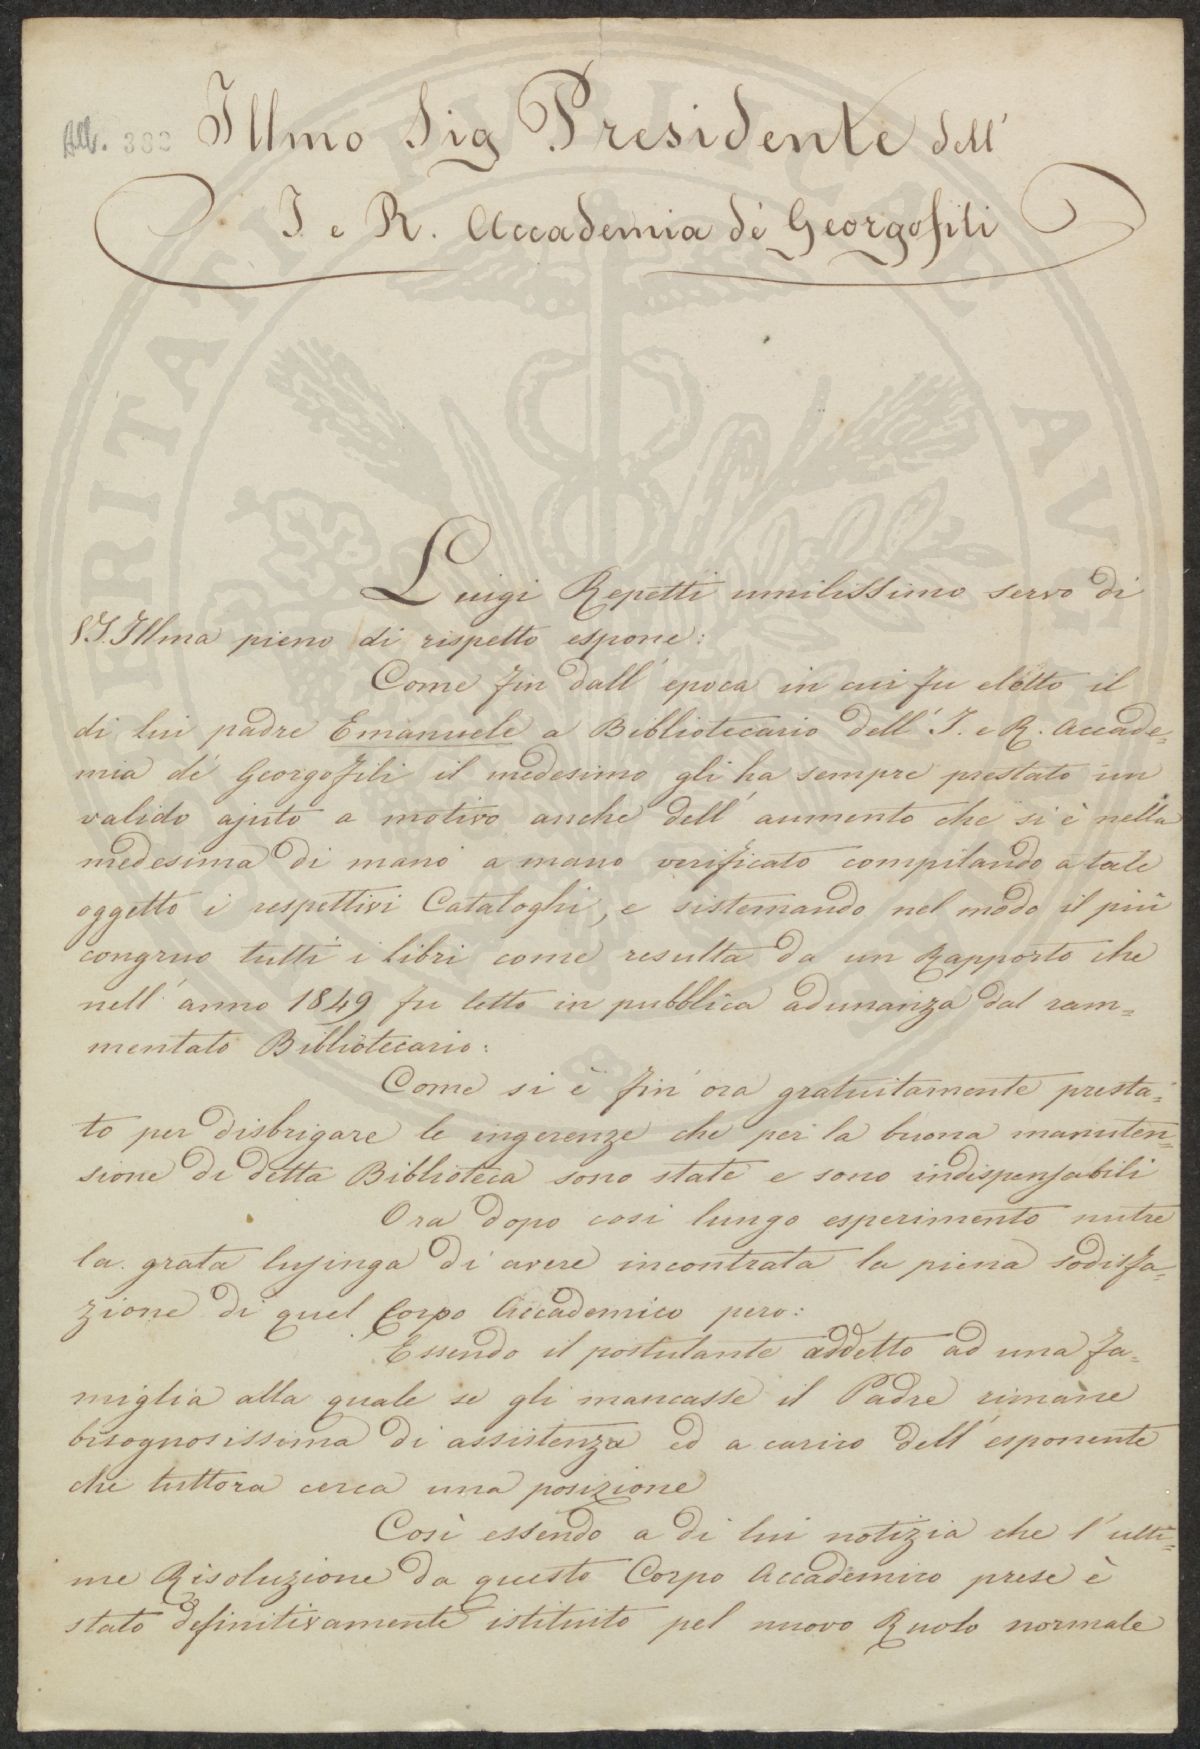 All. 383
Illmo Sig Presidente dell'
I. e R. Accademia de' Georgofili
Luigi Repetti umilissimo servo di
V.S. Illma pieno di rispetto espone:
Come fin dall'epoca in cui fu eletto il
di lui padre Emanuele a Bibliotecario dell'I. e R. Accade=
mia de' Georgofili il medesimo gli ha sempre prestato un
valido ajuto a motivo anche dell'aumento che si è nella
medesima di mano a mano verificato compilando a tale
oggetto i respettivi Cataloghi, e sistemando nel modo il più
congruo tutti i libri come resulta da un Rapporto che
nell'anno 1849 fu letto in pubblica adunanza dal ram=
mentato Bibliotecario:
Come si è fin'ora gratuitamente presta=
to per disbrigare le ingerenze che per la buona manuten=
sione di detta Biblioteca sono state e sono indispensabili
Ora dopo così lungo esperimento nutre
la grata lusinga di avere incontrata la piena sodisfa=
zione di quel Corpo Accademico pero:
Essendo il postulante addetto ad una fa=
miglia alla quale se gli mancasse il Padre rimane
bisognosissima di assistenza ed a carico dell'esponente
che tuttora cerca una posizione
Così essendo a di lui notizia che l'ulti=
me Risoluzione da questo Corpo Accademico prese è
stato definitivamente istituito pel nuovo Ruolo normale
VERITATI
PUBLICAE